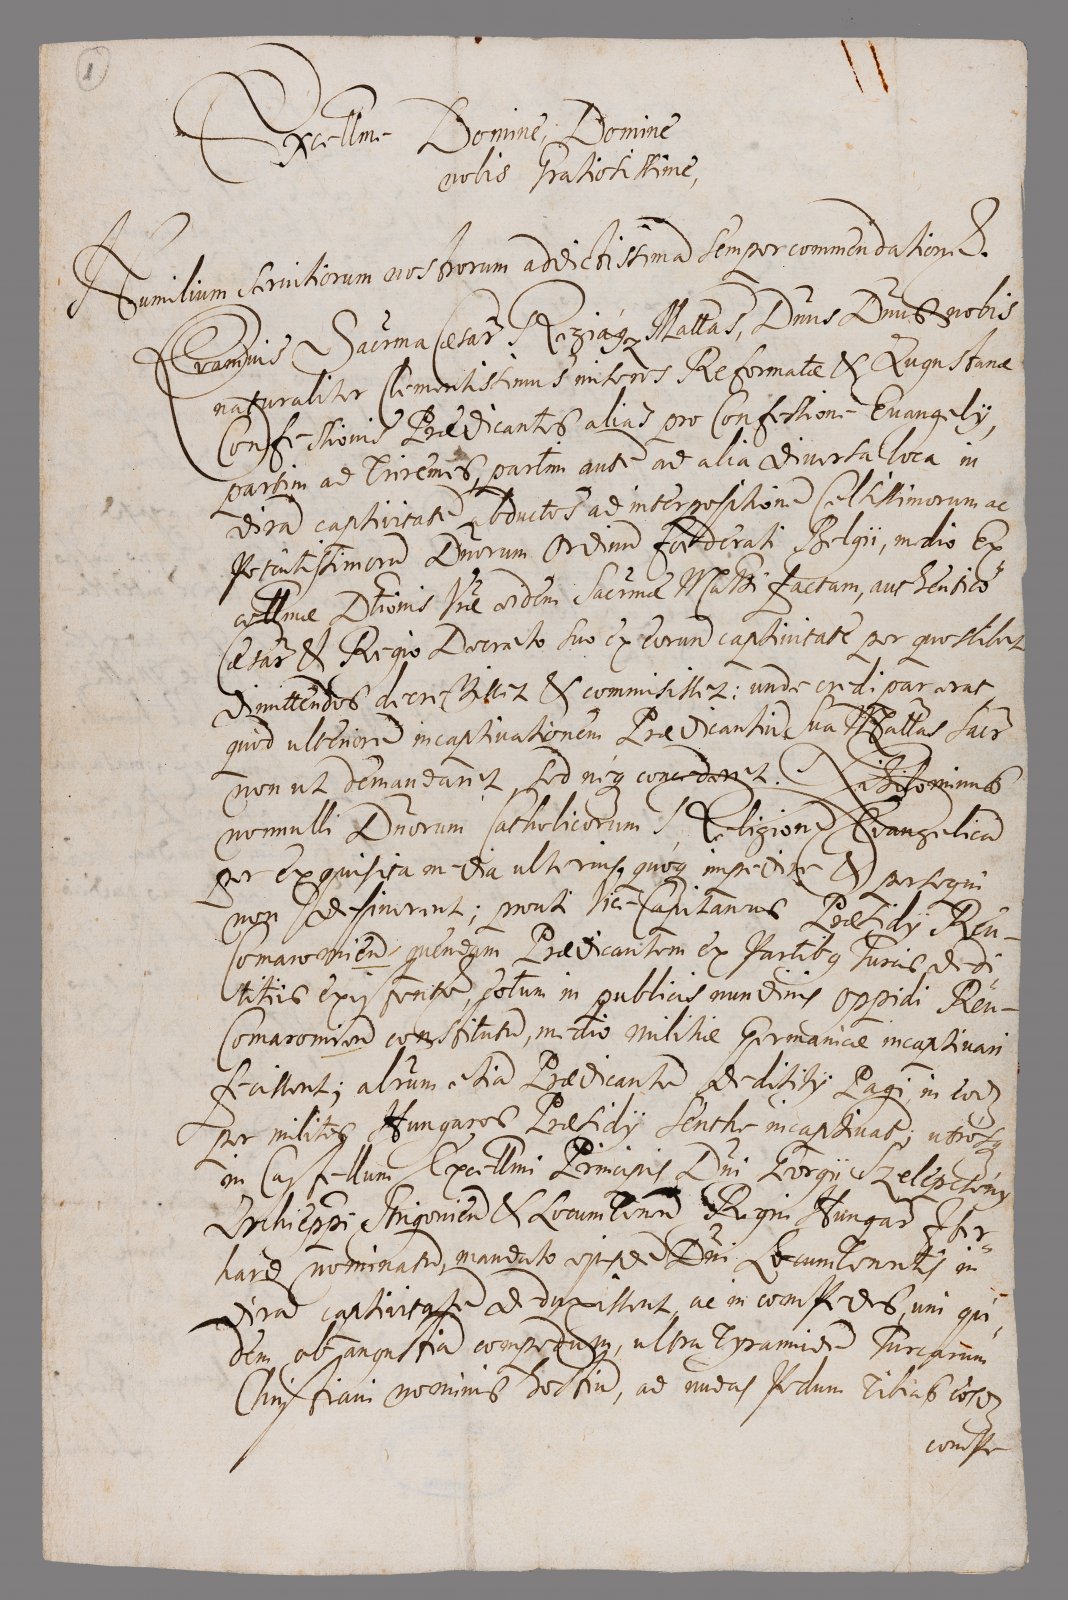 1
Excellme Domine, Domine
nobis Gratiosissime,
Humilium servitiorum nostrorum addictissima semper commendatione.
Quamvis Sacrma Caesar Regiaq Mattas, Dnus Dnus nobis
naturaliter Clementissimus miseros Reformatae & Augustanae
Confessionis Praedicantes alias pro Confessione Evangelij,
partim ad Triremes, partim aute ad alia diversa loca in
dira captivitate abductos ad interpositione Celsissimorum ac
Potentissimoru Dnorum Ordinu foederati Belgii, medio Ex
cellmae Dtionis Vrae eidem Sacrmae Matti factam, authentico
Caesar & Regio Decreto suo ex eorum captivitate per quoslibet
dimittendos decrevisset & commisisset: unde credi par erat,
quod ulteriore incaptivationem Praedicantiu sua Mattas Sacr
non ut demandaret, sed neq concederet. Nihilominus
nonnulli Dnorum Catholicorum Religione Evangelica
per exquisita media ulterius quoq impedire & persequi
non desinerent; prout Vice Capitaneus Praesidij Reu-
Comaromien quendam Praedicantem ex Partibq Turcis dedi
titiis existente, solum in publicis nundinis oppidi Reu-
Comaromien constitutu, medio militiae Germanicae incaptivari
fecissent; alrum etia Praedicante deditity Pagi, in eod
per milites Hungaros Praesidij Senthe incaptivat; utrosq
in Castellum Excellmi Principis Dni Georgii Szelepcseny
Archieppi Strigonien & Locumtenen Regni Hungar Iher-
hard nominatu, mandato ejusde Dni Locumtenentis in
dira captivitate deduxissent, ac in compedes, uni qui
dem ob angustia compedum, ultra tyrannide Turcarum
Christiani nominis hostiu, ad nudas Pedum Tibias eosd
compe